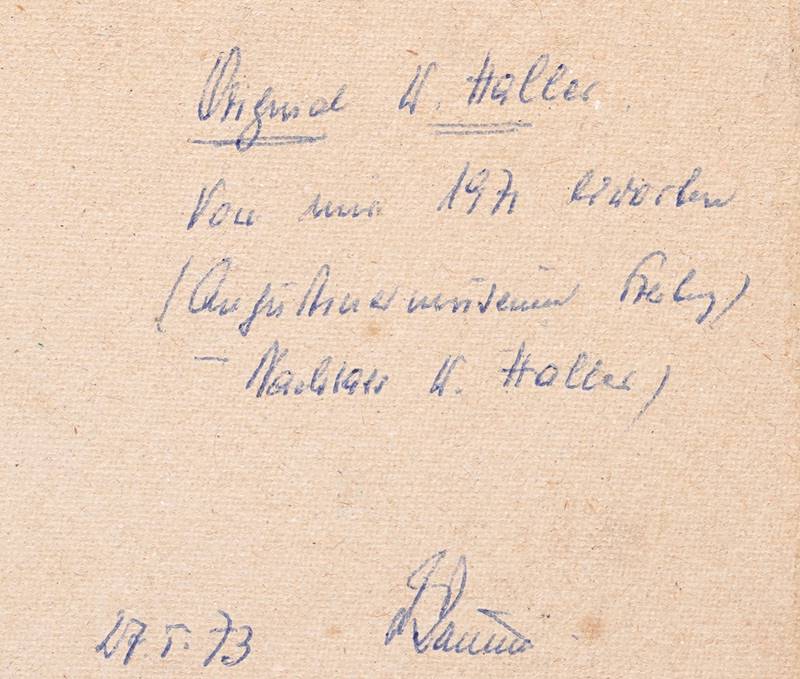 Original K. Haller
Von mir 1971 erworben
(Augustinermuseum Freibg)
– Nachlass K. Haller)
27.I.73